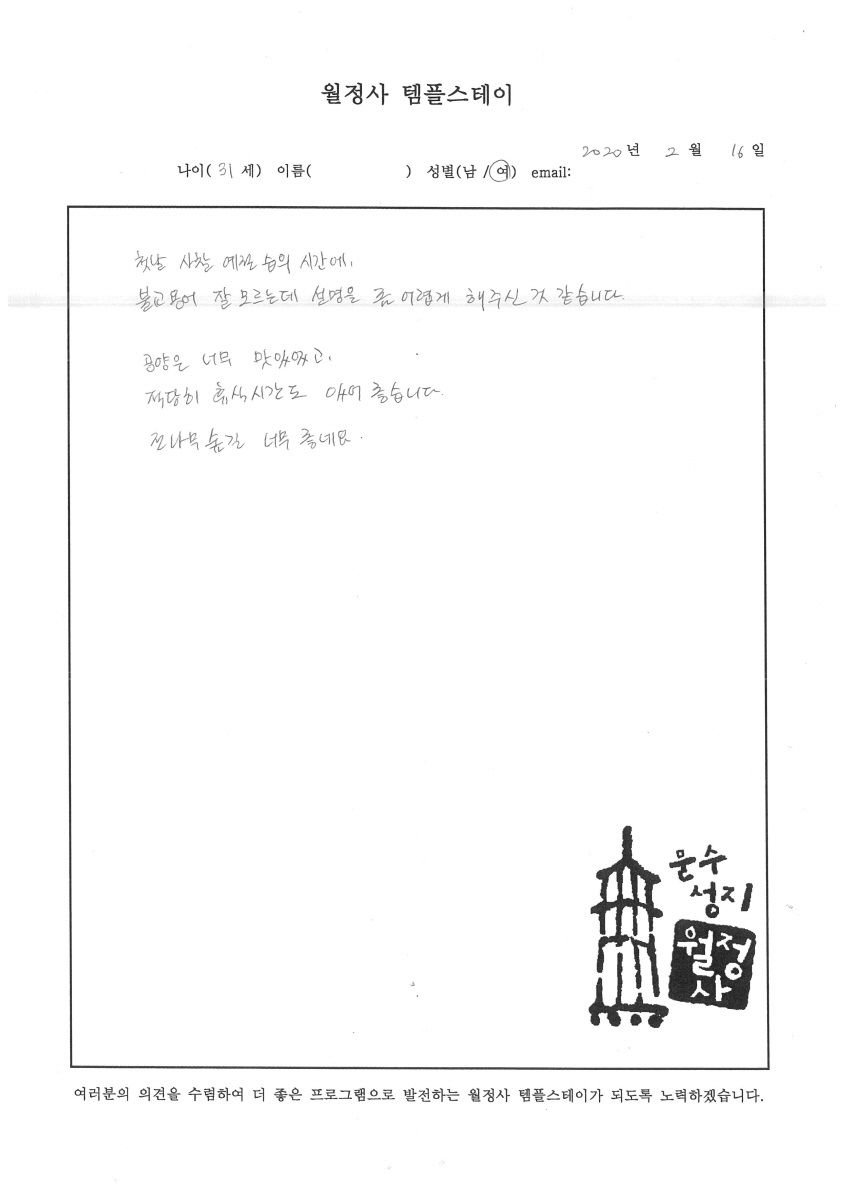 월정사 템플스테이
2020년 2월 16일
나이( 31 세) 이름( ) 성별(남 /여) email:
첫날 사찰 예절 습의 시간에,
불교용어 잘 모르는데 설명을 좀 어렵게 해주신 것 같습니다.
공양은 너무 맛있었고,
적당히 휴식시간도 있어 좋습니다.
전나무 숲길 너무 좋네요.
문수
성지
월정
사
여러분의 의견을 수렴하여 더 좋은 프로그램으로 발전하는 월정사 템플스테이가 되도록 노력하겠습니다.